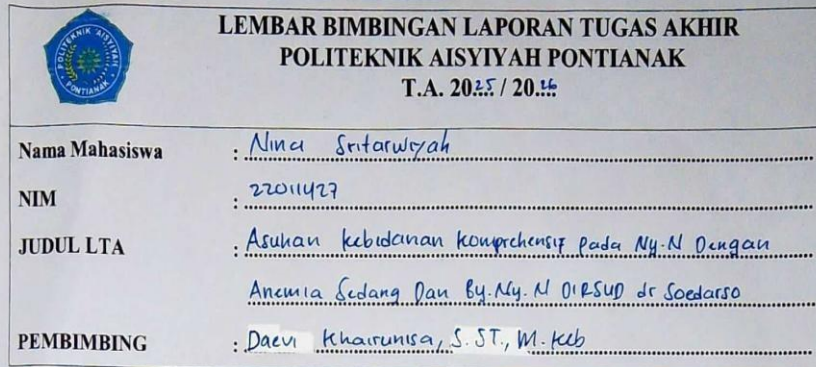 POLITEKNIK 'AISYIYAH
PONTIANAK
LEMBAR BIMBINGAN LAPORAN TUGAS AKHIR
POLITEKNIK AISYIYAH PONTIANAK
T.A. 2025 / 2026
Nama Mahasiswa : Nina Sritarwiyah
NIM : 22011427
JUDUL LTA : Asuhan kebidanan komprehensif pada Ny.N Dengan
Anemia Sedang Dan By.Ny.N DIRSUD dr Soedarso
PEMBIMBING : Daevi Khairunisa, S.ST., M.Keb